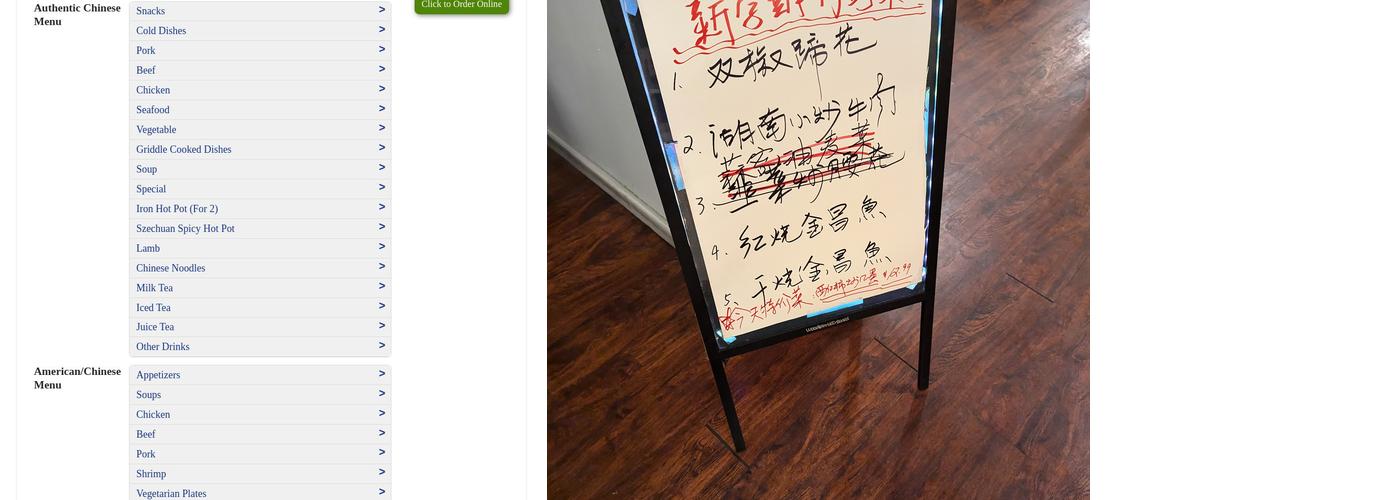 Authentic Chinese
Menu
Snacks >
Cold Dishes >
Pork >
Beef >
Chicken >
Seafood >
Vegetable >
Griddle Cooked Dishes >
Soup >
Special >
Iron Hot Pot (For 2) >
Szechuan Spicy Hot Pot >
Lamb >
Chinese Noodles >
Milk Tea >
Iced Tea >
Juice Tea >
Other Drinks >
American/Chinese
Menu
Appetizers >
Soups >
Chicken >
Beef >
Pork >
Shrimp >
Vegetarian Plates >
Click to Order Online
1. 双椒蹄花
2. 湖南小炒牛肉
3.
4. 红烧金昌魚
5、干烧金昌魚
今天特价菜